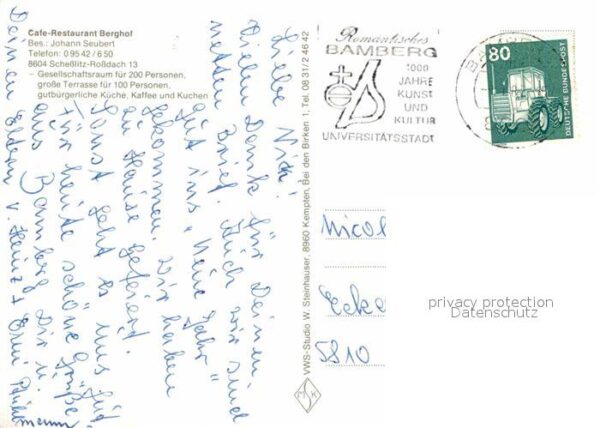 Cafe-Restaurant Berghof
Bes.: Johann Seubert
Telefon: 0 95 42 / 6 50
8604 Scheßlitz-Roßdach 13
– Gesellschaftsraum für 200 Personen,
große Terrasse für 100 Personen,
gutbürgerliche Küche, Kaffee und Kuchen
Liebe
Vielen Dank für Deinen
netten Brief. Auch wir sind
gut ins "Neue Jahr"
gekommen. Wir haben
zu Hause gefeiert.
Sonst geht es uns gut
für heute schöne Grüße
aus Bamberg Dir u.
Deinen Eltern v. Heinz +
VWS-Studio W. Steinhauser, 8960 Kempten, Bei den Birken 1, Tel. 08 31 / 2 46 42
Romantisches
BAMBERG
1000
JAHRE
KUNST
UND
KULTUR
UNIVERSITÄTSSTADT
80
DEUTSCHE BUNDESPOST
Nicol
Ecke
5810
privacy protection
Datenschutz